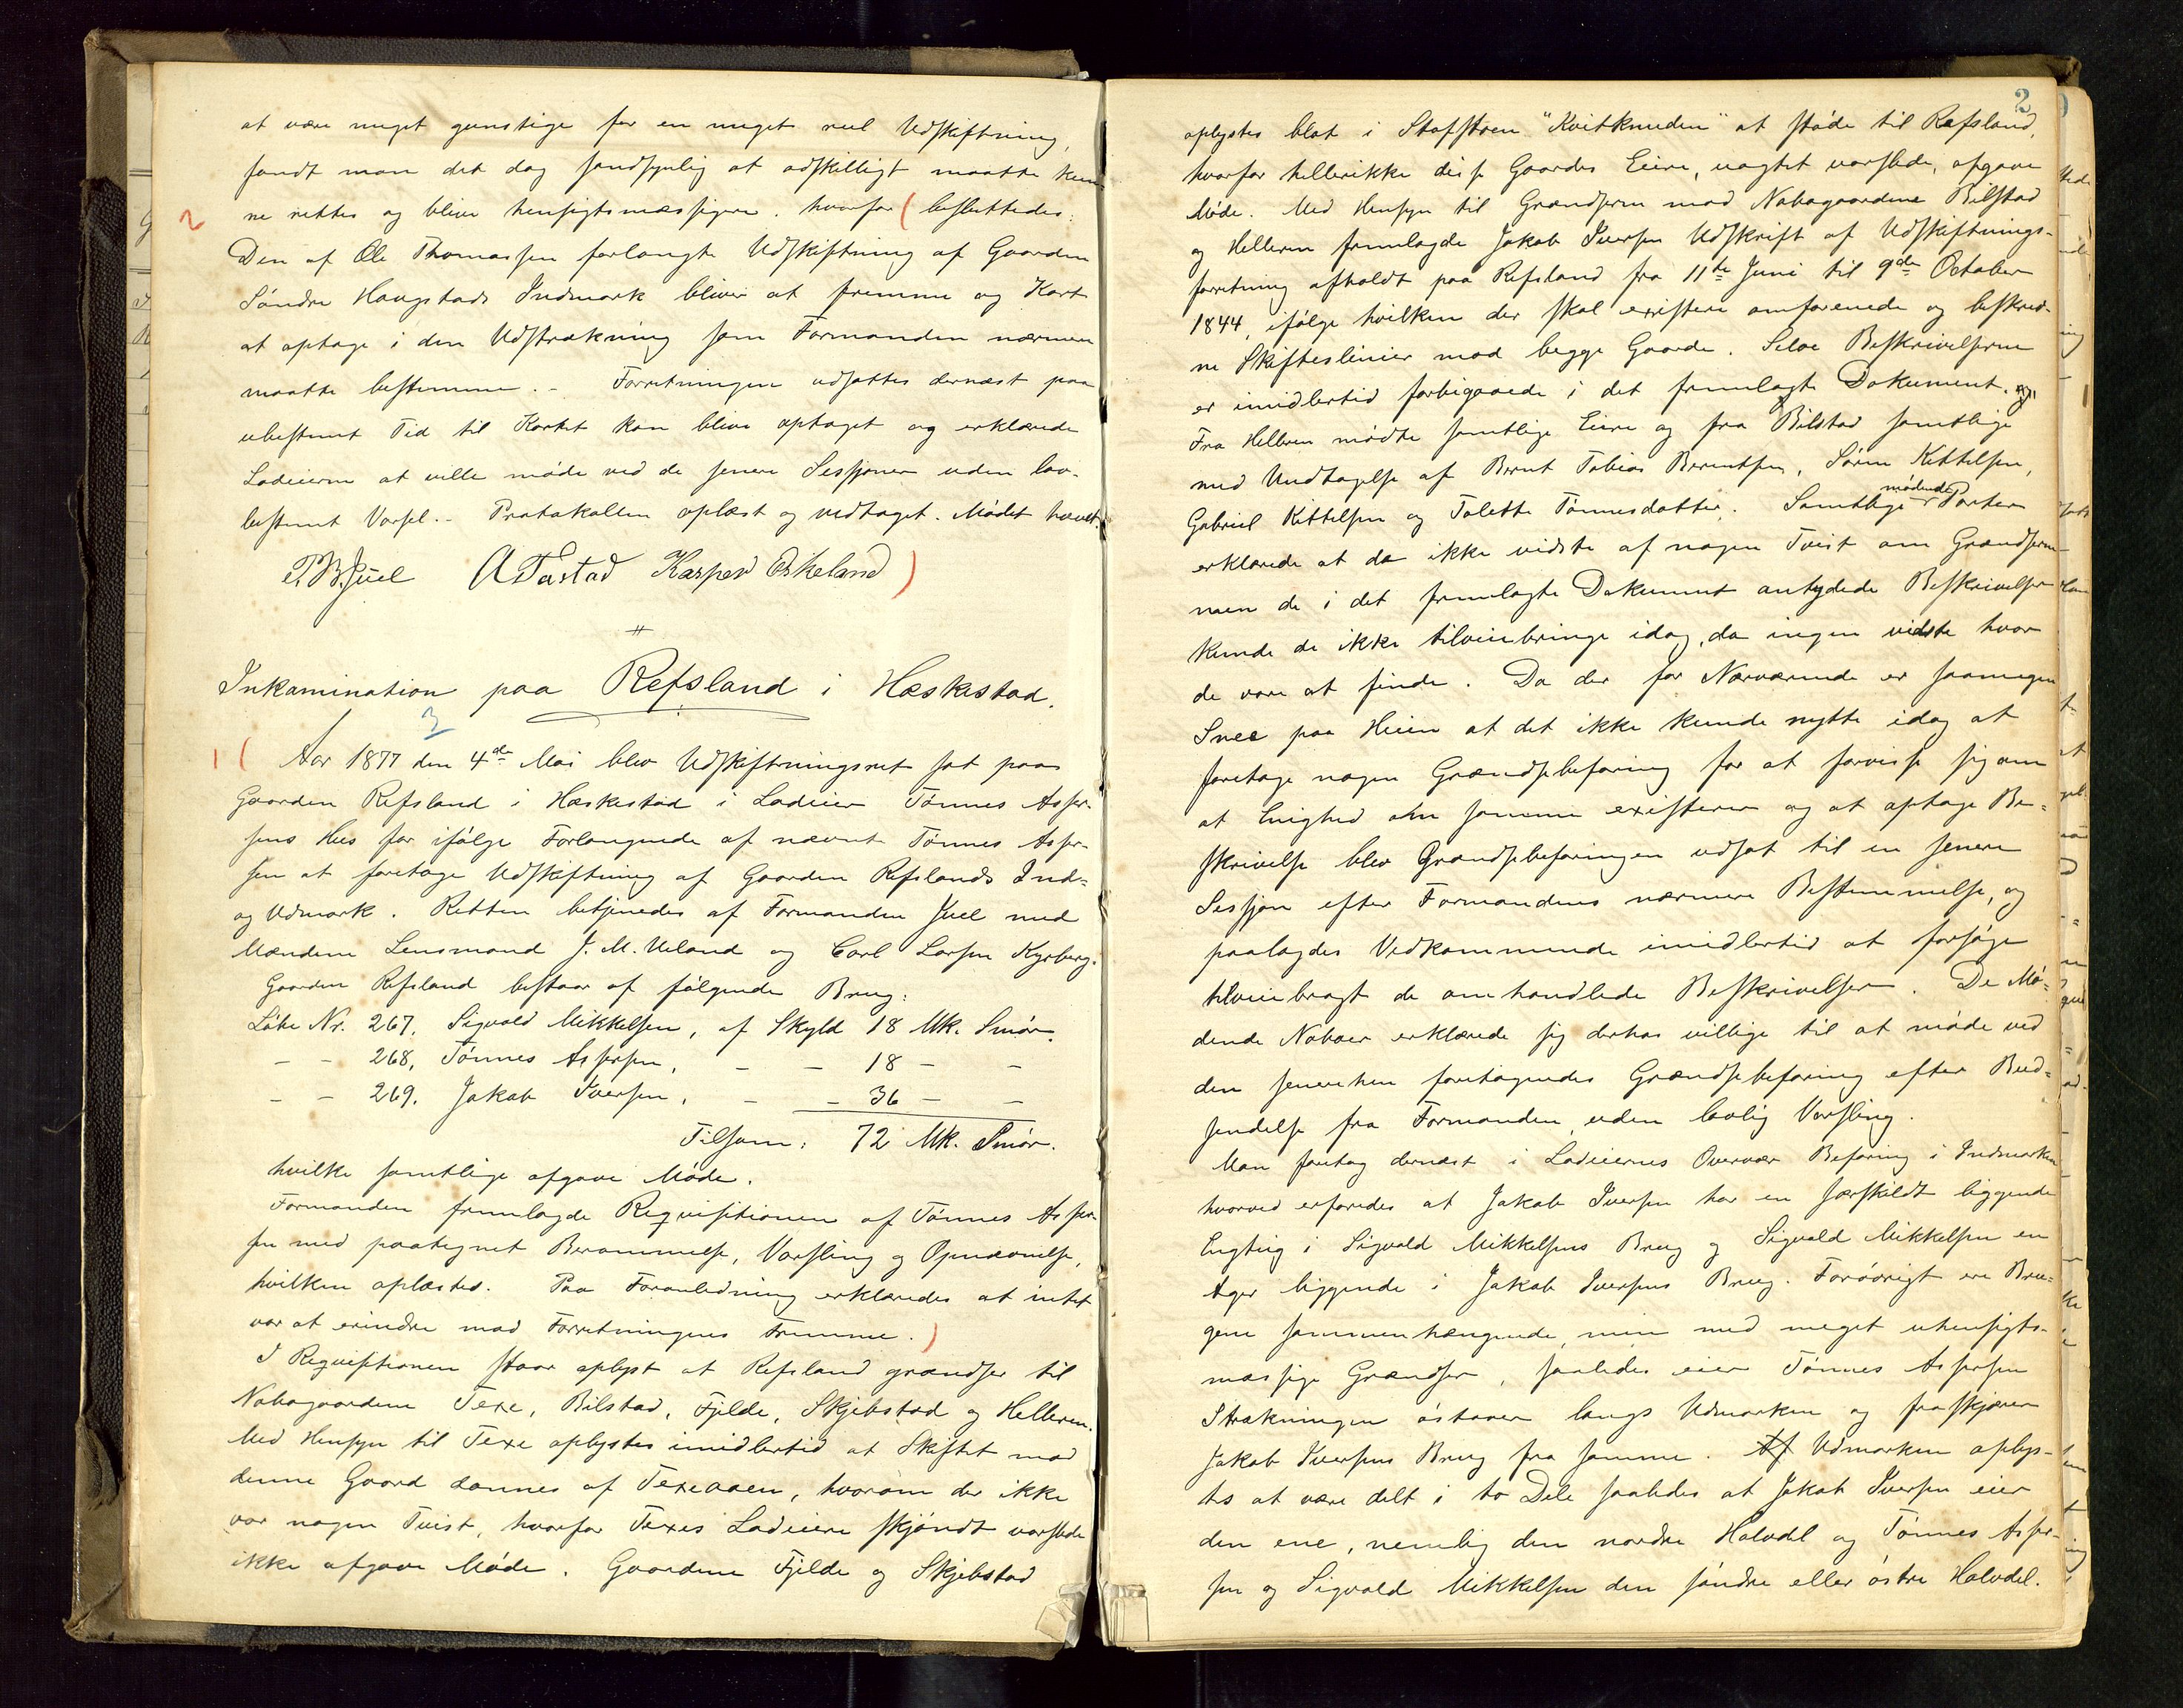 at være meget gunstige for en meget reel Udskiftning,
fandt man det dog sandsynlig at adskilligt maatte kun-
2 ne rettes og blive hensigtsmæssigere. hvorfor ( besluttedes:
Den af Ole Thomassen forlangte Udskiftning af Gaarden
Søndre Haugstads Indmark bliver at fremme og Kart
at optage i den Udstrækning som Formanden nærmere
maatte bestemme. - Forretningen udsattes dernæst paa
ubestemt Tid til Kartet kan blive optaget og erklærede
Lodeierne at ville møde ved de senere Sessioner uden lov-
bestemt Varsel. - Protokollen oplæst og vedtaget. Mødet hævet.
P. B. Juel A Tastad Kasper Eskeland )
Inkamination paa Refsland i Heskestad.
3
1 ( Aar 1877 den 4de Mai blev Udskiftningsret sat paa
Gaarden Refsland i Heskestad i Lodeier Tønnes Asser-
sens Hus for ifølge Forlangende af nævnte Tønnes Asser-
sen at foretage Udskiftning af Gaarden Refslands Ind-
og Udmark. Retten betjenedes af Formanden Juel med
Mændene Lensmand J. M. Ueland og Carl Larsen Kydberg.
Gaarden Refsland bestaar af følgende Brug:
Løbe Nr. 267. Sigvald Mikkelsen, af Skyld 18 Mk. Smør.
- - 268, Tønnes Assersen, - - 18 - -
- - 269. Jakob Iversen, - - 36 - -
Tilsam: 72 Mk. Smør.
hvilke samtlige afgave Møde.
Formanden fremlagde Requisitionen af Tønnes Asser-
sen med paategnet Berammelse, Varsling og Opnævnelse,
hvilken oplæstes. Paa Foranledning erklæredes at intet
var at erindre mod Forretningens Fremme. )
I Requisitionen staar oplyst at Refsland grændser til
Nabogaardene Texe, Bilstad, Fjelde, Skjebstad og Helleren.
Med Hensyn til Texe oplystes imidlertid at Skiftet mod
denne Gaard dannes af Texeaaen, hvorom der ikke
var nogen Tvist, hvorfor Texes Lodeiere skjøndt varslede
ikke afgave Møde. Gaardene Fjelde og Skjebstad
2
oplystes blot i Støttsteen "Kvitknuden" at støde til Refsland,
hvorfor hellerikke disse Gaardes Eiere, uagtet varslede, afgave
Møde. Med Hensyn til Grændserne mod Nabogaardene Bilstad
og Helleren fremlagde Jakob Iversen Udskrift af Udskiftnings-
forretning afholdt paa Refsland fra 11te Juni til 9de October
1844, ifølge hvilken der skal existere omforenede og beskrev-
ne Skifteslinier mod begge Gaarde. Selve Beskrivelserne
er imidlertid forbigaaede i det fremlagte Dokument.
Fra Helleren mødte samtlige Eiere og fra Bilstad samtlige
med Undtagelse af Bernt Tobias Berentsen, Søren Kittelsen,
Gabriel Kittelsen og Tolette Tønnesdatter. Samtlige mødende Parter
erklærede at de ikke vidste af nogen Tvist om Grændserne
men de i det fremlagte Dokument antydede Beskrivelser
kunde de ikke tilveiebringe idag, da ingen vidste hvor
de vare at finde. Da der for Nærværende er saamegen
Snee paa Heien at det ikke kunde nytte idag at
foretage nogen Grændsebefaring for at forvisse sig om
at Enighed om samme existerer og at optage Be-
skrivelse blev Grændsebefaringen udsat til en senere
Session efter Formandens nærmere Bestemmelse, og
paalagdes Vedkommende imidlertid at forsøge
tilveiebragt de omhandlede Beskrivelser. De Mø-
dende Naboer erklærede sig derhos villige til at møde ved
den senerehen foretagendes Grændsebefaring efter Bud-
sendelse fra Formanden, uden lovlig Varsling.
Man foretog dernæst i Lodeiernes Overvær Befaring i Indmarken
hvorved erfaredes at Jakob Iversen har en særskildt liggende
Engteig i Sigvald Mikkelsens Brug og Sigvald Mikkelsen en
Ager liggende i Jakob Iversens Brug. Forøvrigt ere Bru-
gene sammenhængende, men med meget uhensigts-
mæssige Grændser, saaledes eier Tønnes Assersen
Strækningen østover langs Udmarken og fraskjærer
Jakob Iversens Brug fra samme. Af Udmarken oplys-
tes at være delt i to Dele saaledes at Jakob Iversen eier
den ene, nemlig den nordre Halvdel og Tønnes Asser-
sen og Sigvald Mikkelsen den søndre eller østre Halvdel.